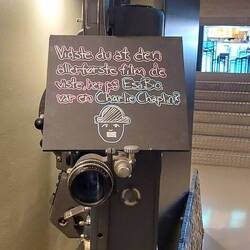 Vidste du at den
allerførste film de
viste her på EsaBo
var en Charlie Chaplin?